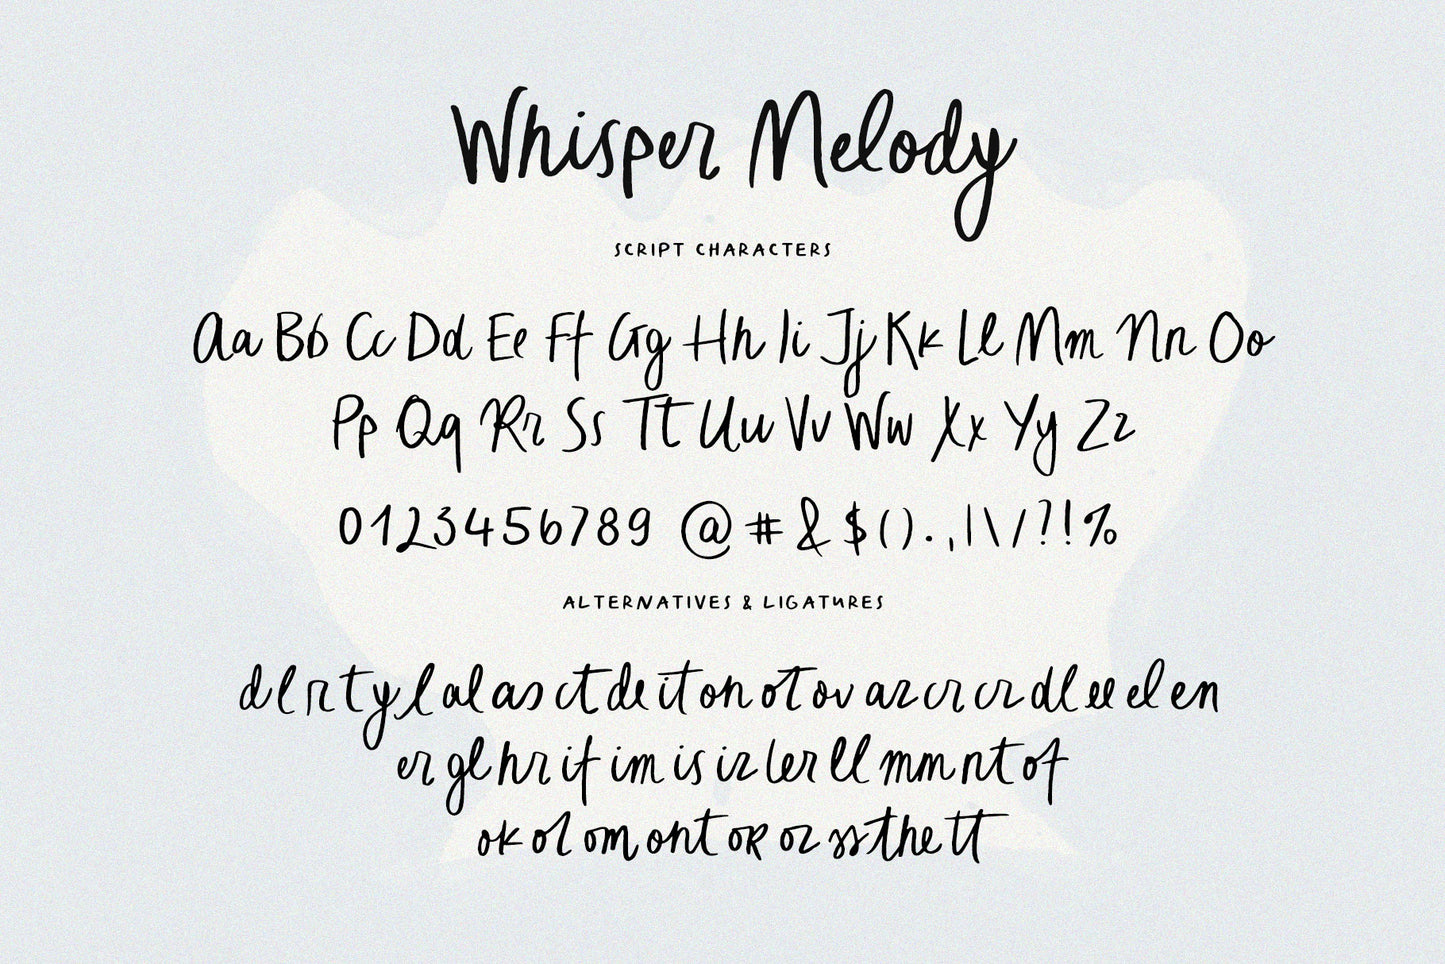 Whisper Melody
SCRIPT CHARACTERS
Aa Bb Cc Dd Ee Ff Gg Hh Ii Jj Kk Ll Mm Nn Oo
Pp Qq Rr Ss Tt Uu Vv Ww Xx Yy Zz
0123456789 @ # & $ ( ) . , | \ / ? ! %
ALTERNATIVES & LIGATURES
d l r t y l al as ct de it on ot ov ar cr cr dl ee el en
er gl hr if im is ir ler ll mm nt of
ok ol om ont or or ss the tt